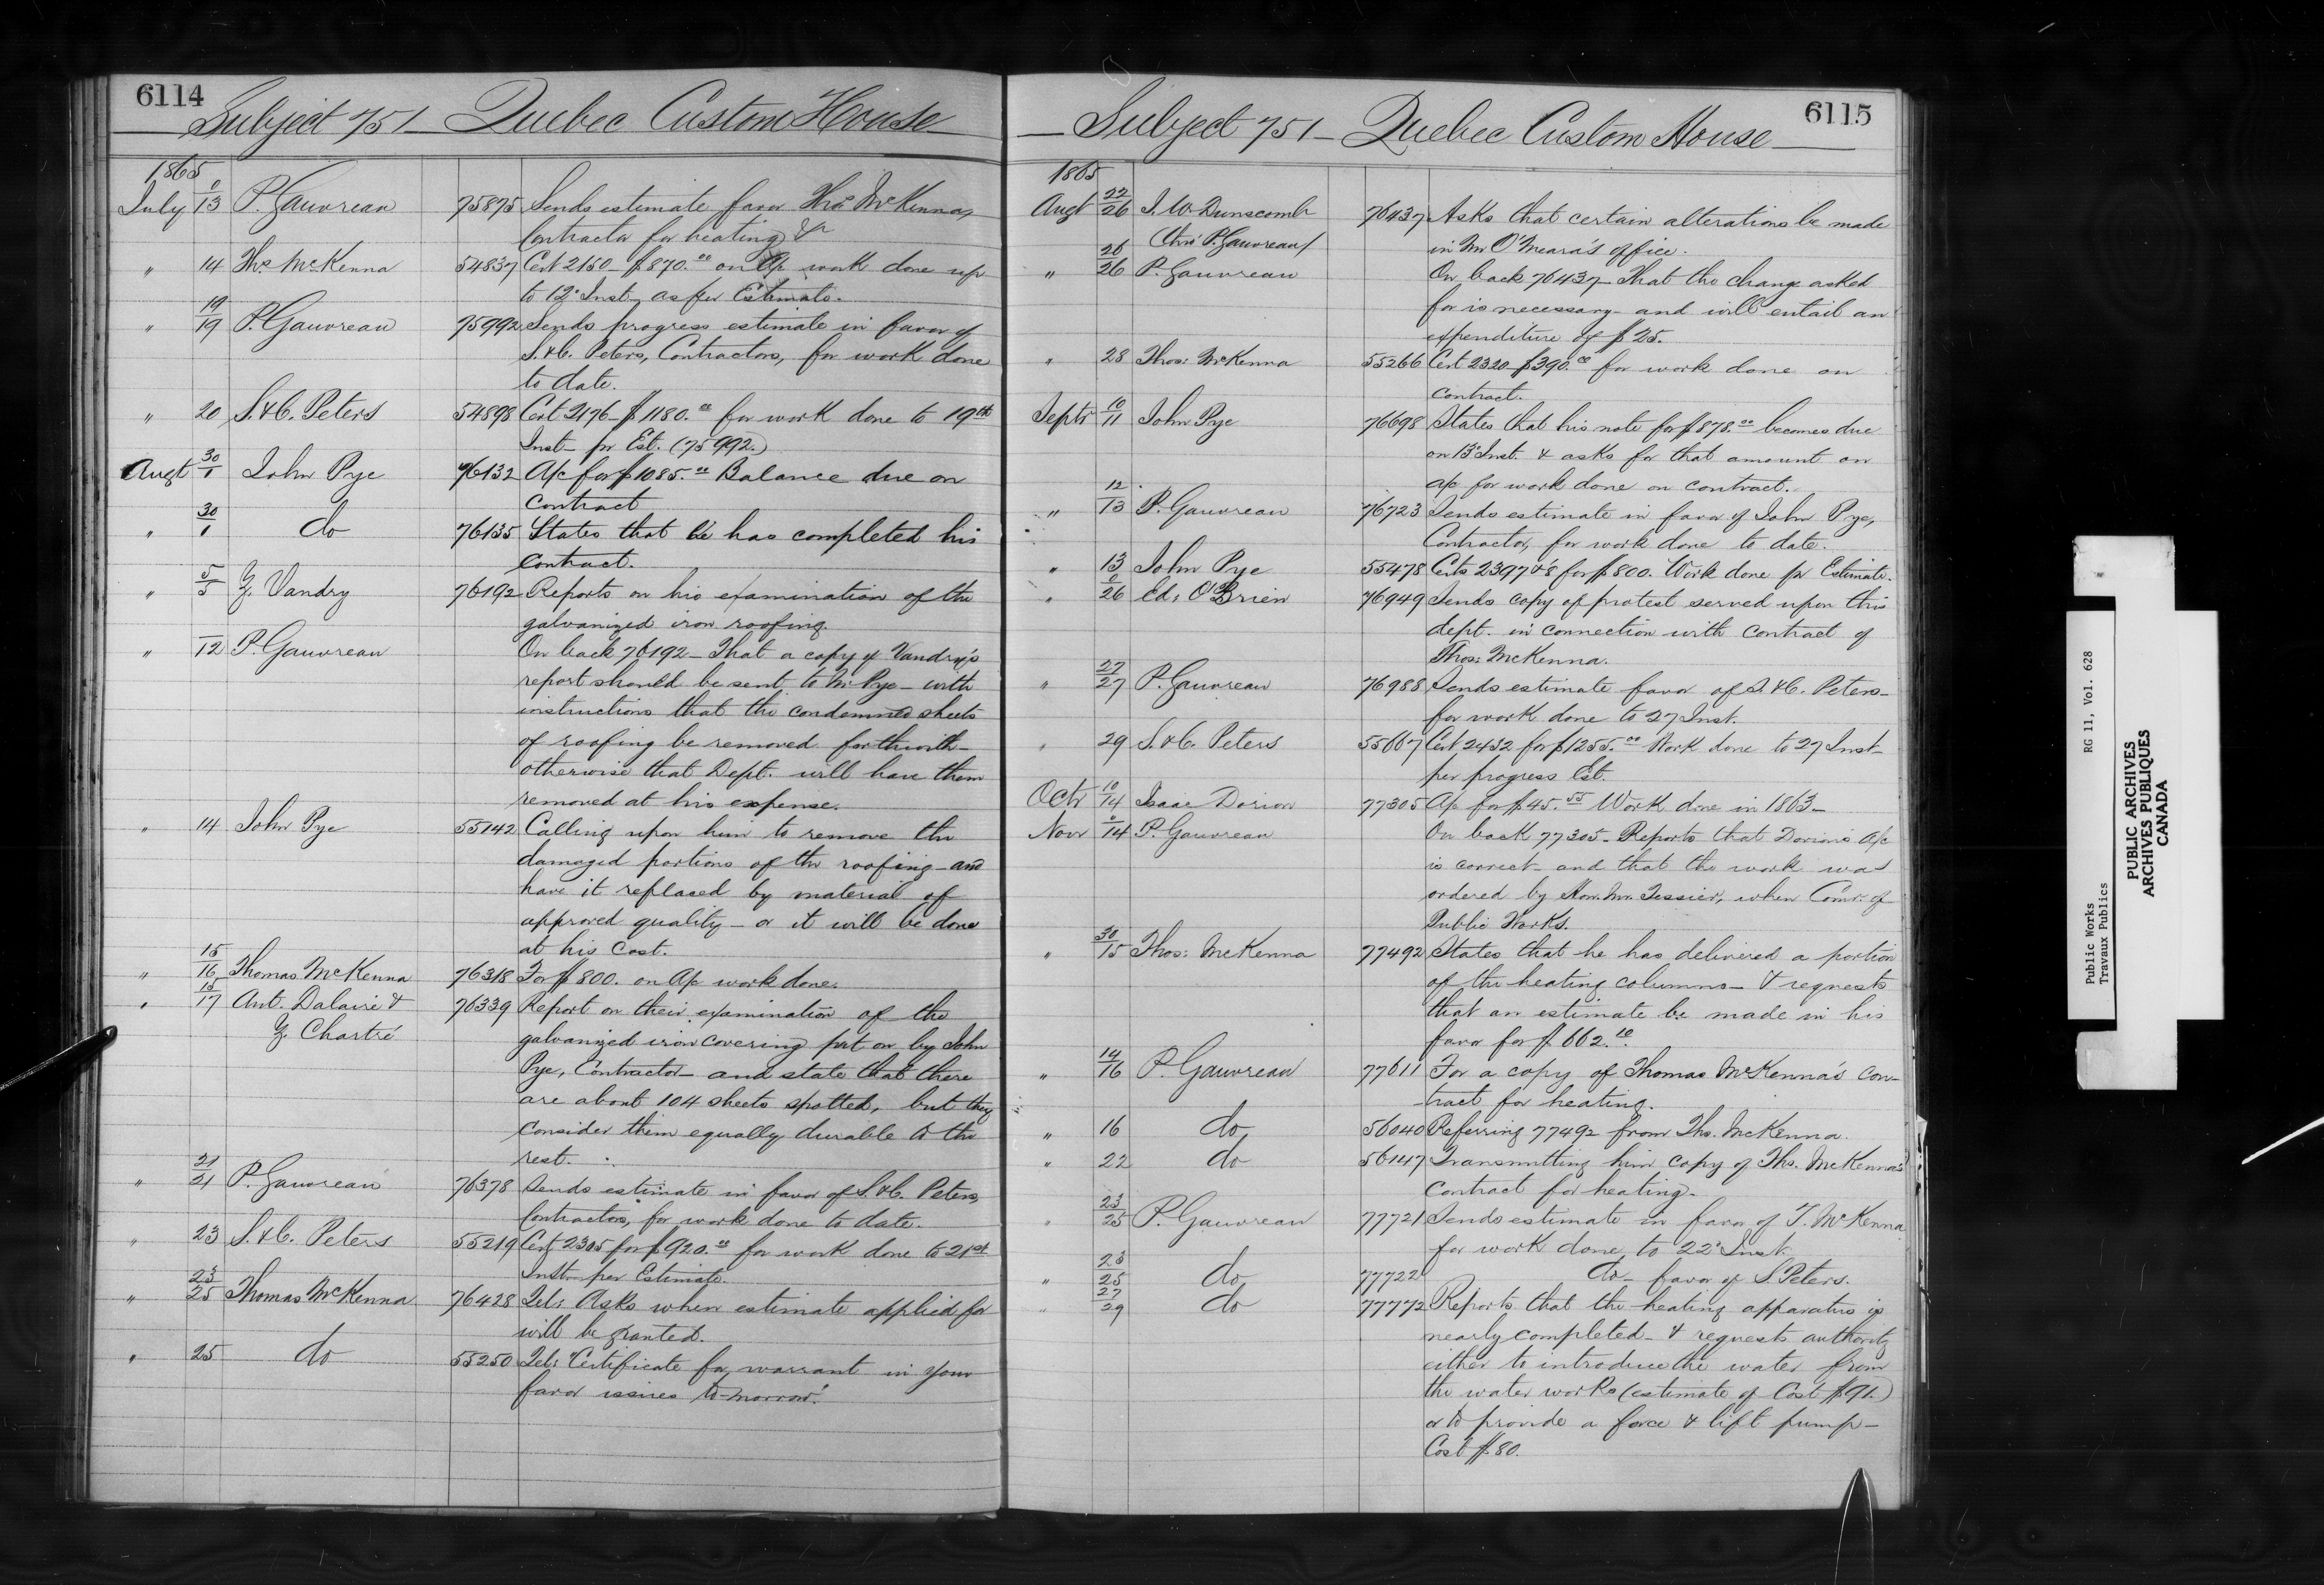 6114
Subject 751 - Quebec Custom House
1865
July 13 P. Gauvreau 75875 Sends estimate favor Thos McKenna,
Contractor for heating &c
" 14 Thos McKenna 54837 Cert 2150 - $870.00 on a/c work done up
to 12th Inst. as per Estimate.
" 19/19 P. Gauvreau 75992 Sends progress estimate in favor of
S. & C. Peters, Contractors, for work done
to date.
" 20 S. & C. Peters 54898 Cert 2176 - $1180.00 for work done to 19th
Inst - pr Est. (75992.)
Augt 30/1 John Pye 76132 A/c for $1085.00 Balance due on
contract
" 30/1 do 76135 States that he has completed his
contract.
" 5/5 Z. Vandry 76192 Reports on his examination of the
galvanized iron roofing.
" 12 P. Gauvreau On back 76192 - That a copy of Vandry's
report should be sent to Mr Pye - with
instructions that the condemned sheets
of roofing be removed forthwith -
otherwise that Dept. will have them
removed at his expense.
" 14 John Pye 55142 Calling upon him to remove the
damaged portions of the roofing - and
have it replaced by material of
approved quality - or it will be done
at his cost.
" 15/16 Thomas McKenna 76318 For $800. on a/c work done.
" 15/17 Ant. Dalaire & 76339 Report on their examination of the
Z. Chartré galvanized iron covering put on by John
Pye, Contractor - and state that there
are about 104 sheets spotted, but they
consider them equally durable to the
rest.
" 21/21 P. Gauvreau 76378 Sends estimate in favor of S. & C. Peters,
Contractors, for work done to date.
" 23 S. & C. Peters 55219 Cert 2305 for $920.00 for work done to 21st
Inst. per Estimate.
" 23/25 Thomas McKenna 76428 Tel: Asks when estimate applied for
will be granted.
" 25 do 55250 Tel: "Certificate for warrant in your
favor issues to-morrow."
6115
Subject 751 - Quebec Custom House
1865
Augt 22/26 J. W. Dunscomb 76437 Asks that certain alterations be made
(thro' P. Gauvreau) in Mr O'Meara's office.
" 26/26 P. Gauvreau On back 76437 - That the change asked
for is necessary - and will entail an
expenditure of $25.
" 28 Thos: McKenna 55266 Cert 2320 $390.00 for work done on
contract.
Septr 10/11 John Pye 76698 States that his note for $878.00 becomes due
on 13th Inst. & asks for that amount on
a/c for work done on contract.
" 12/13 P. Gauvreau 76723 Sends estimate in favor of John Pye,
Contractor, for work done to date.
" 13 John Pye 55478 Certs 2397 & 8 for $800. Work done pr Estimate.
" 26 Ed: O'Brien 76949 Sends copy of protest served upon this
dept. in connection with contract of
Thos: McKenna.
" 27/27 P. Gauvreau 76988 Sends estimate favor of S. & C. Peters -
for work done to 27 Inst.
" 29 S. & C. Peters 55667 Cert 2432 for $1255.00 Work done to 27 Inst -
per progress Est.
Octr 10/14 Isaac Dorion 77305 A/c for $45.55 Work done in 1863 -
Novr 14 P. Gauvreau On back 77305 - Reports that Dorion's a/c
is correct - and that the work was
ordered by Hon. Mr. Tessier, when Comr. of
Public Works.
" 30/15 Thos: McKenna 77492 States that he has delivered a portion
of the heating columns - & requests
that an estimate be made in his
favor for $662.10.
" 14/16 P. Gauvreau 77611 For a copy of Thomas McKenna's con-
tract for heating.
" 16 do 56040 Referring 77492 from Thos. McKenna.
" 22 do 56147 Transmitting him copy of Thos. McKenna's
contract for heating.
" 23/25 P. Gauvreau 77721 Sends estimate in favor of T. McKenna
for work done to 22d Inst.
" 23/25 do 77722 do - favor of S. Peters.
" 27/29 do 77772 Reports that the heating apparatus is
nearly completed - & requests authority
either to introduce the water from
the water works (estimate of Cost $91.)
or to provide a force & lift pump -
Cost $80.
Public Works RG 11, Vol. 628
Travaux Publics
PUBLIC ARCHIVES
ARCHIVES PUBLIQUES
CANADA